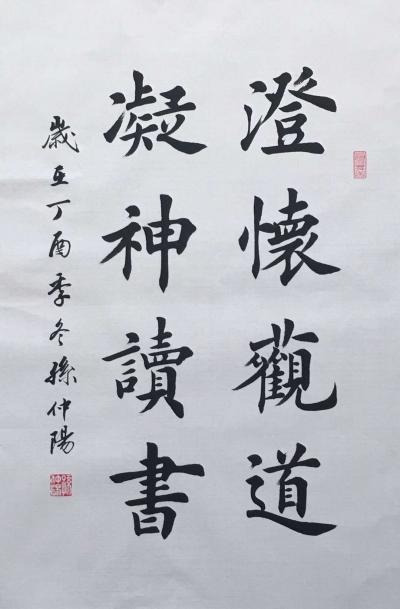 澄懷觀道
凝神讀書
歲在丁酉季冬孫仲陽